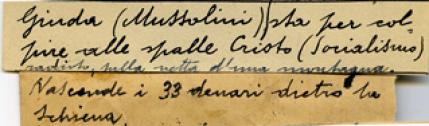 Giuda (Mussolini) sta per col-
pire alle spalle Cristo (Socialismo)
sulla vetta d'una montagna.
Nasconde i 33 denari dietro la
schiena